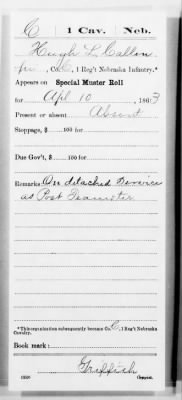 C | 1 Cav. | Neb.
Hugh L. Callon
Pri, Co. C, 1 Reg't Nebraska Infantry.*
Appears on Special Muster Roll
for Apl 10, 1863
Present or absent Absent
Stoppage, $ 100 for
Due Gov't, $ 100 for
Remarks: On detached Service
as Post Teamster
*This organization subsequently became Co. C, 1 Reg't Nebraska
Cavalry.
Book mark:
Griffith
Copyist.